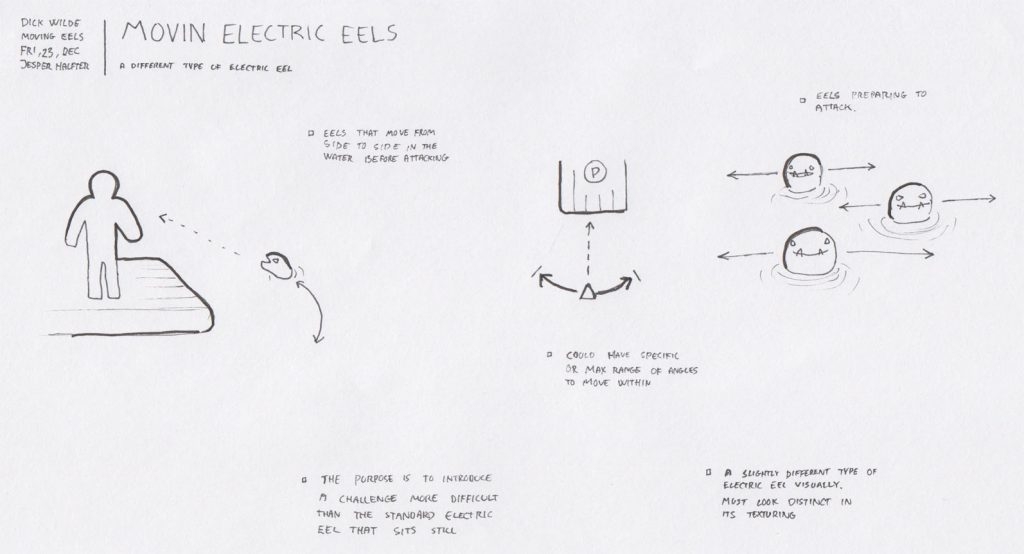 DICK WILDE
MOVING EELS
FRI, 23, DEC
JESPER HALFTER
MOVIN ELECTRIC EELS
A DIFFERENT TYPE OF ELECTRIC EEL
EELS THAT MOVE FROM
SIDE TO SIDE IN THE
WATER BEFORE ATTACKING
EELS PREPARING TO
ATTACK.
P
COULD HAVE SPECIFIC
OR MAX RANGE OF ANGLES
TO MOVE WITHIN
THE PURPOSE IS TO INTRODUCE
A CHALLENGE MORE DIFFICULT
THAN THE STANDARD ELECTRIC
EEL THAT SITS STILL
A SLIGHTLY DIFFERENT TYPE OF
ELECTRIC EEL VISUALLY.
MUST LOOK DISTINCT IN
ITS TEXTURING